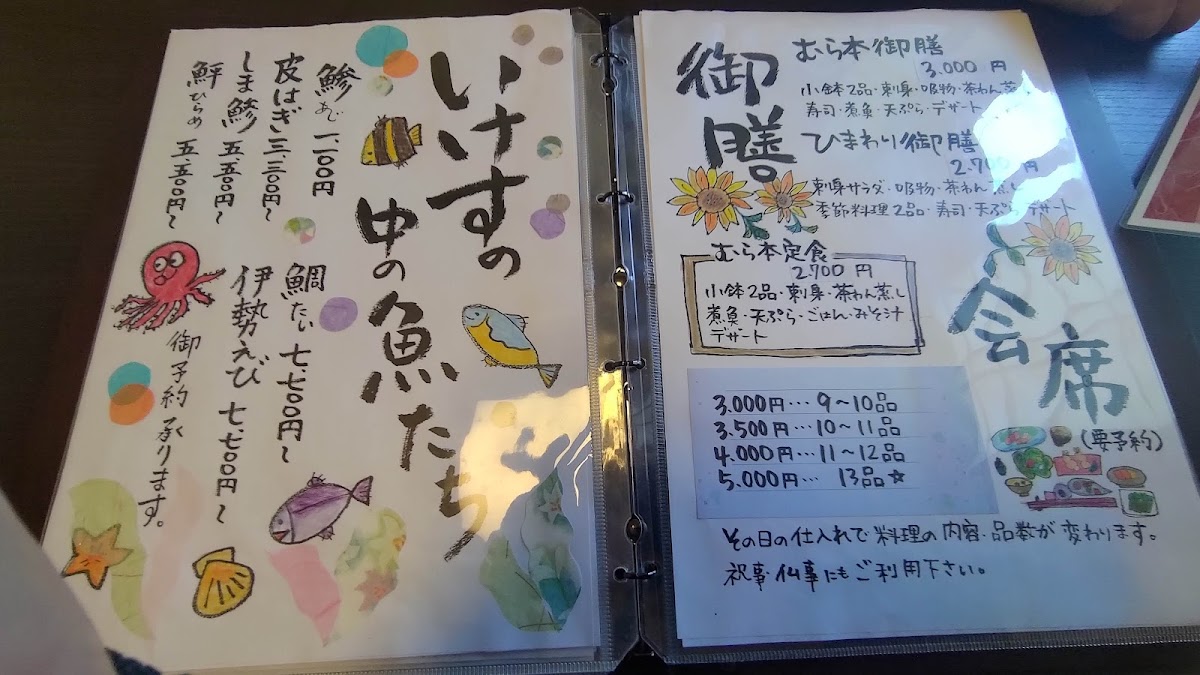 いけすの
中の魚たち
鯵 あじ 一、一〇〇円
皮はぎ 三、三〇〇円〜
しま鯵 五、五〇〇円〜
鮃 ひらめ 五、五〇〇円〜
鯛 たい 七、七〇〇円〜
伊勢えび 七、七〇〇円〜
御予約承ります。
御膳
むら本御膳
3.000円
小鉢2品・刺身・吸物・茶わん蒸し
寿司・煮魚・天ぷら・デザート
ひまわり御膳
2.700円
刺身サラダ・吸物・茶わん蒸し
季節料理2品・寿司・天ぷら・デザート
むら本定食
2700円
小鉢2品・刺身・茶わん蒸し
煮魚・天ぷら・ごはん・みそ汁
デザート
会席
(要予約)
3.000円…9〜10品
3.500円…10〜11品
4.000円…11〜12品
5.000円…13品☆
その日の仕入れで料理の内容・品数が変わります。
祝事・仏事にもご利用下さい。